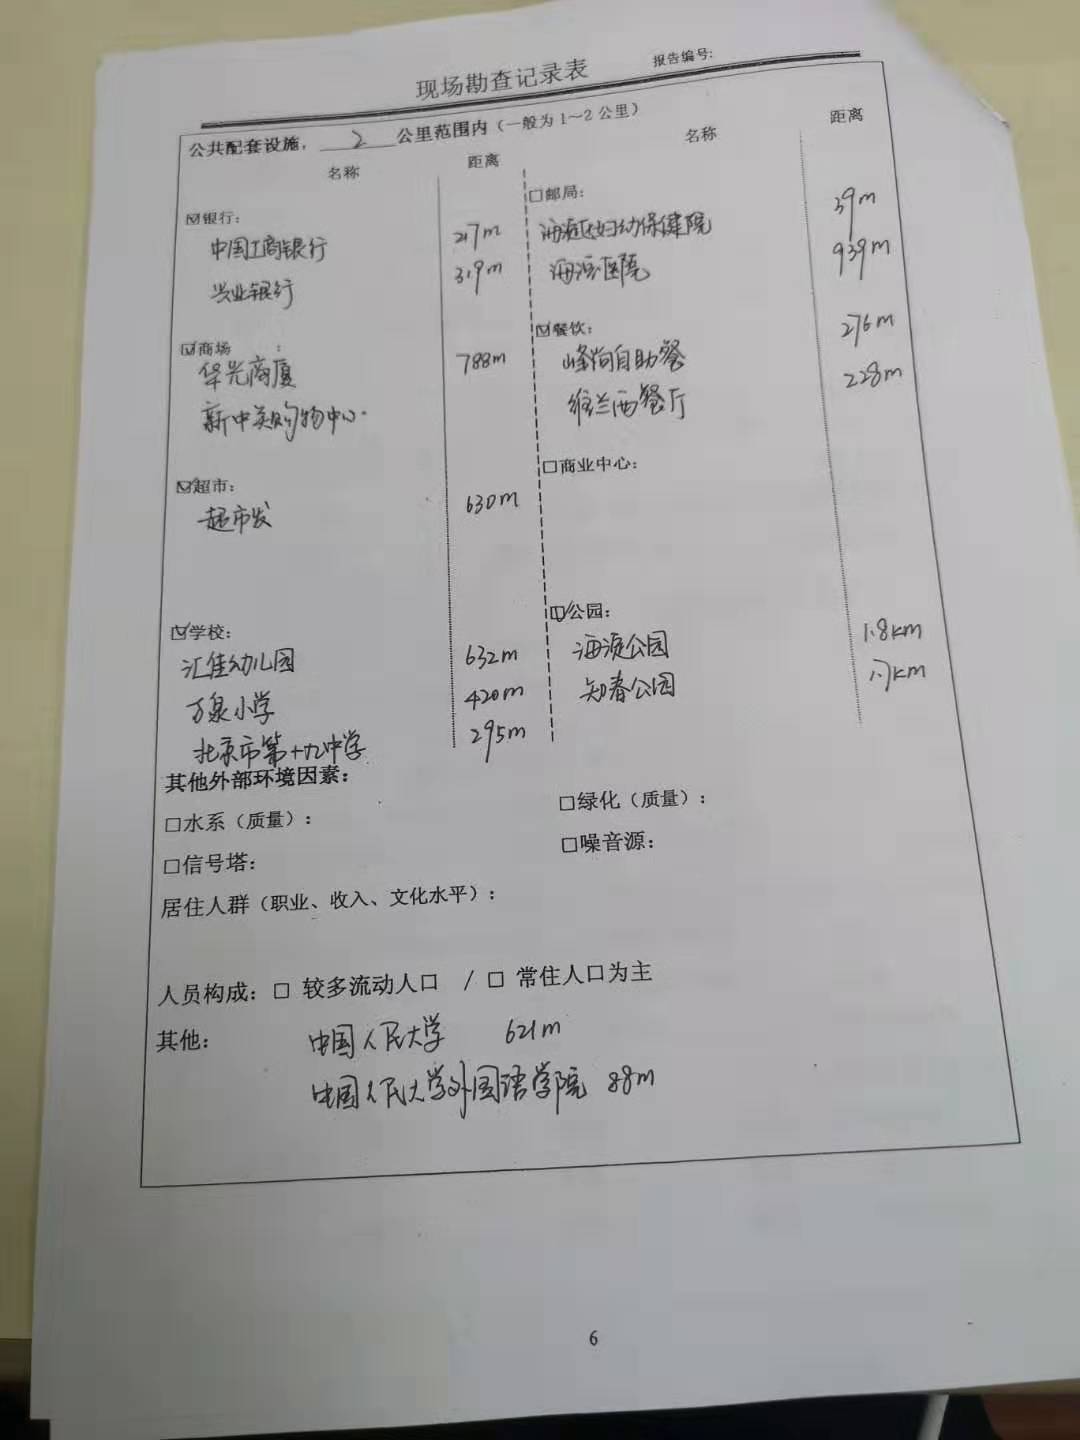 现场勘查记录表 报告编号:
公共配套设施， 2 公里范围内（一般为1～2公里）
名称 距离 名称 距离
☑银行： □邮局：
中国工商银行 217m 海淀区妇幼保健院 39m
兴业银行 319m 海淀医院 939m
☑商场 ： ☑餐饮：
华光商厦 788m 峰尚自助餐 276m
新中关购物中心 维兰西餐厅 228m
☑超市： □商业中心：
超市发 630m
☑学校： ☑公园：
汇佳幼儿园 632m 海淀公园 1.8km
万泉小学 420m 知春公园 1.7km
北京市第十九中学 295m
其他外部环境因素：
□水系（质量）： □绿化（质量）：
□信号塔： □噪音源：
居住人群（职业、收入、文化水平）：
人员构成：□ 较多流动人口 / □ 常住人口为主
其他： 中国人民大学 621m
中国人民大学外国语学院 88m
6